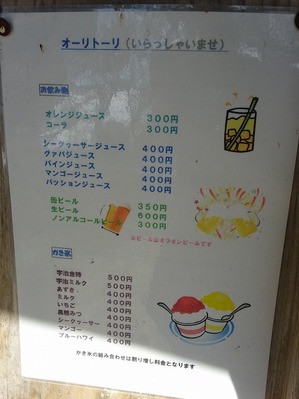 オーリトーリ(いらっしゃいませ)
お飲み物
オレンジジュース 300円
コーラ 300円
シークヮーサージュース 400円
グァバジュース 400円
パインジュース 400円
マンゴージュース 400円
パッションジュース 400円
缶ビール 350円
生ビール 600円
ノンアルコールビール 300円
※ビールはオリオンビールです
かき氷
宇治金時 500円
宇治ミルク 500円
あずき 400円
ミルク 400円
いちご 400円
黒糖みつ 400円
シークヮーサー 400円
マンゴー 400円
ブルーハワイ 400円
かき氷の組み合わせは割り増し料金となります